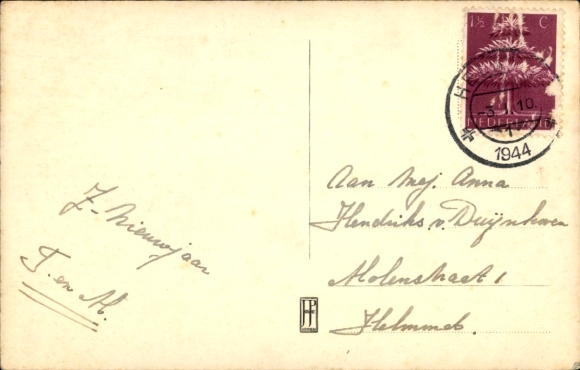 1½ C
NEDERLAND
1944
Z-Nieuwjaar
T. en M.
Aan Mej. Anna
Hendriks v. Duijnhoven
Molenstraat 1
Helmond.